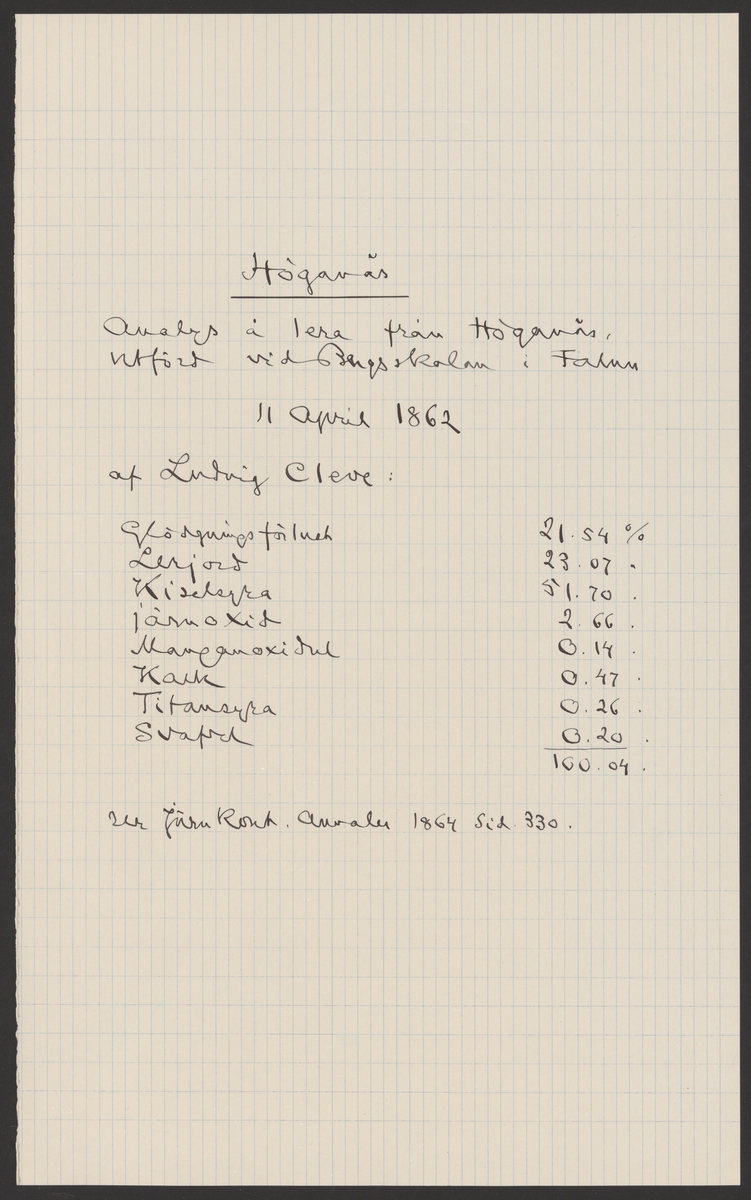 Höganäs
Analys å lera från Höganäs,
utförd vid Bergsskolan i Falun
11 April 1862
af Ludvig Cleve:
Glödgningsförlust 21.54 %
Lerjord 23.07 "
Kiselsyra 51.70 "
järnoxid 2.66 "
Manganoxidul 0.14 "
Kalk 0.47 "
Titansyra 0.26 "
Svafvel 0.20 "
100.04 "
Järn Kont. Annaler 1864 Sid. 330.